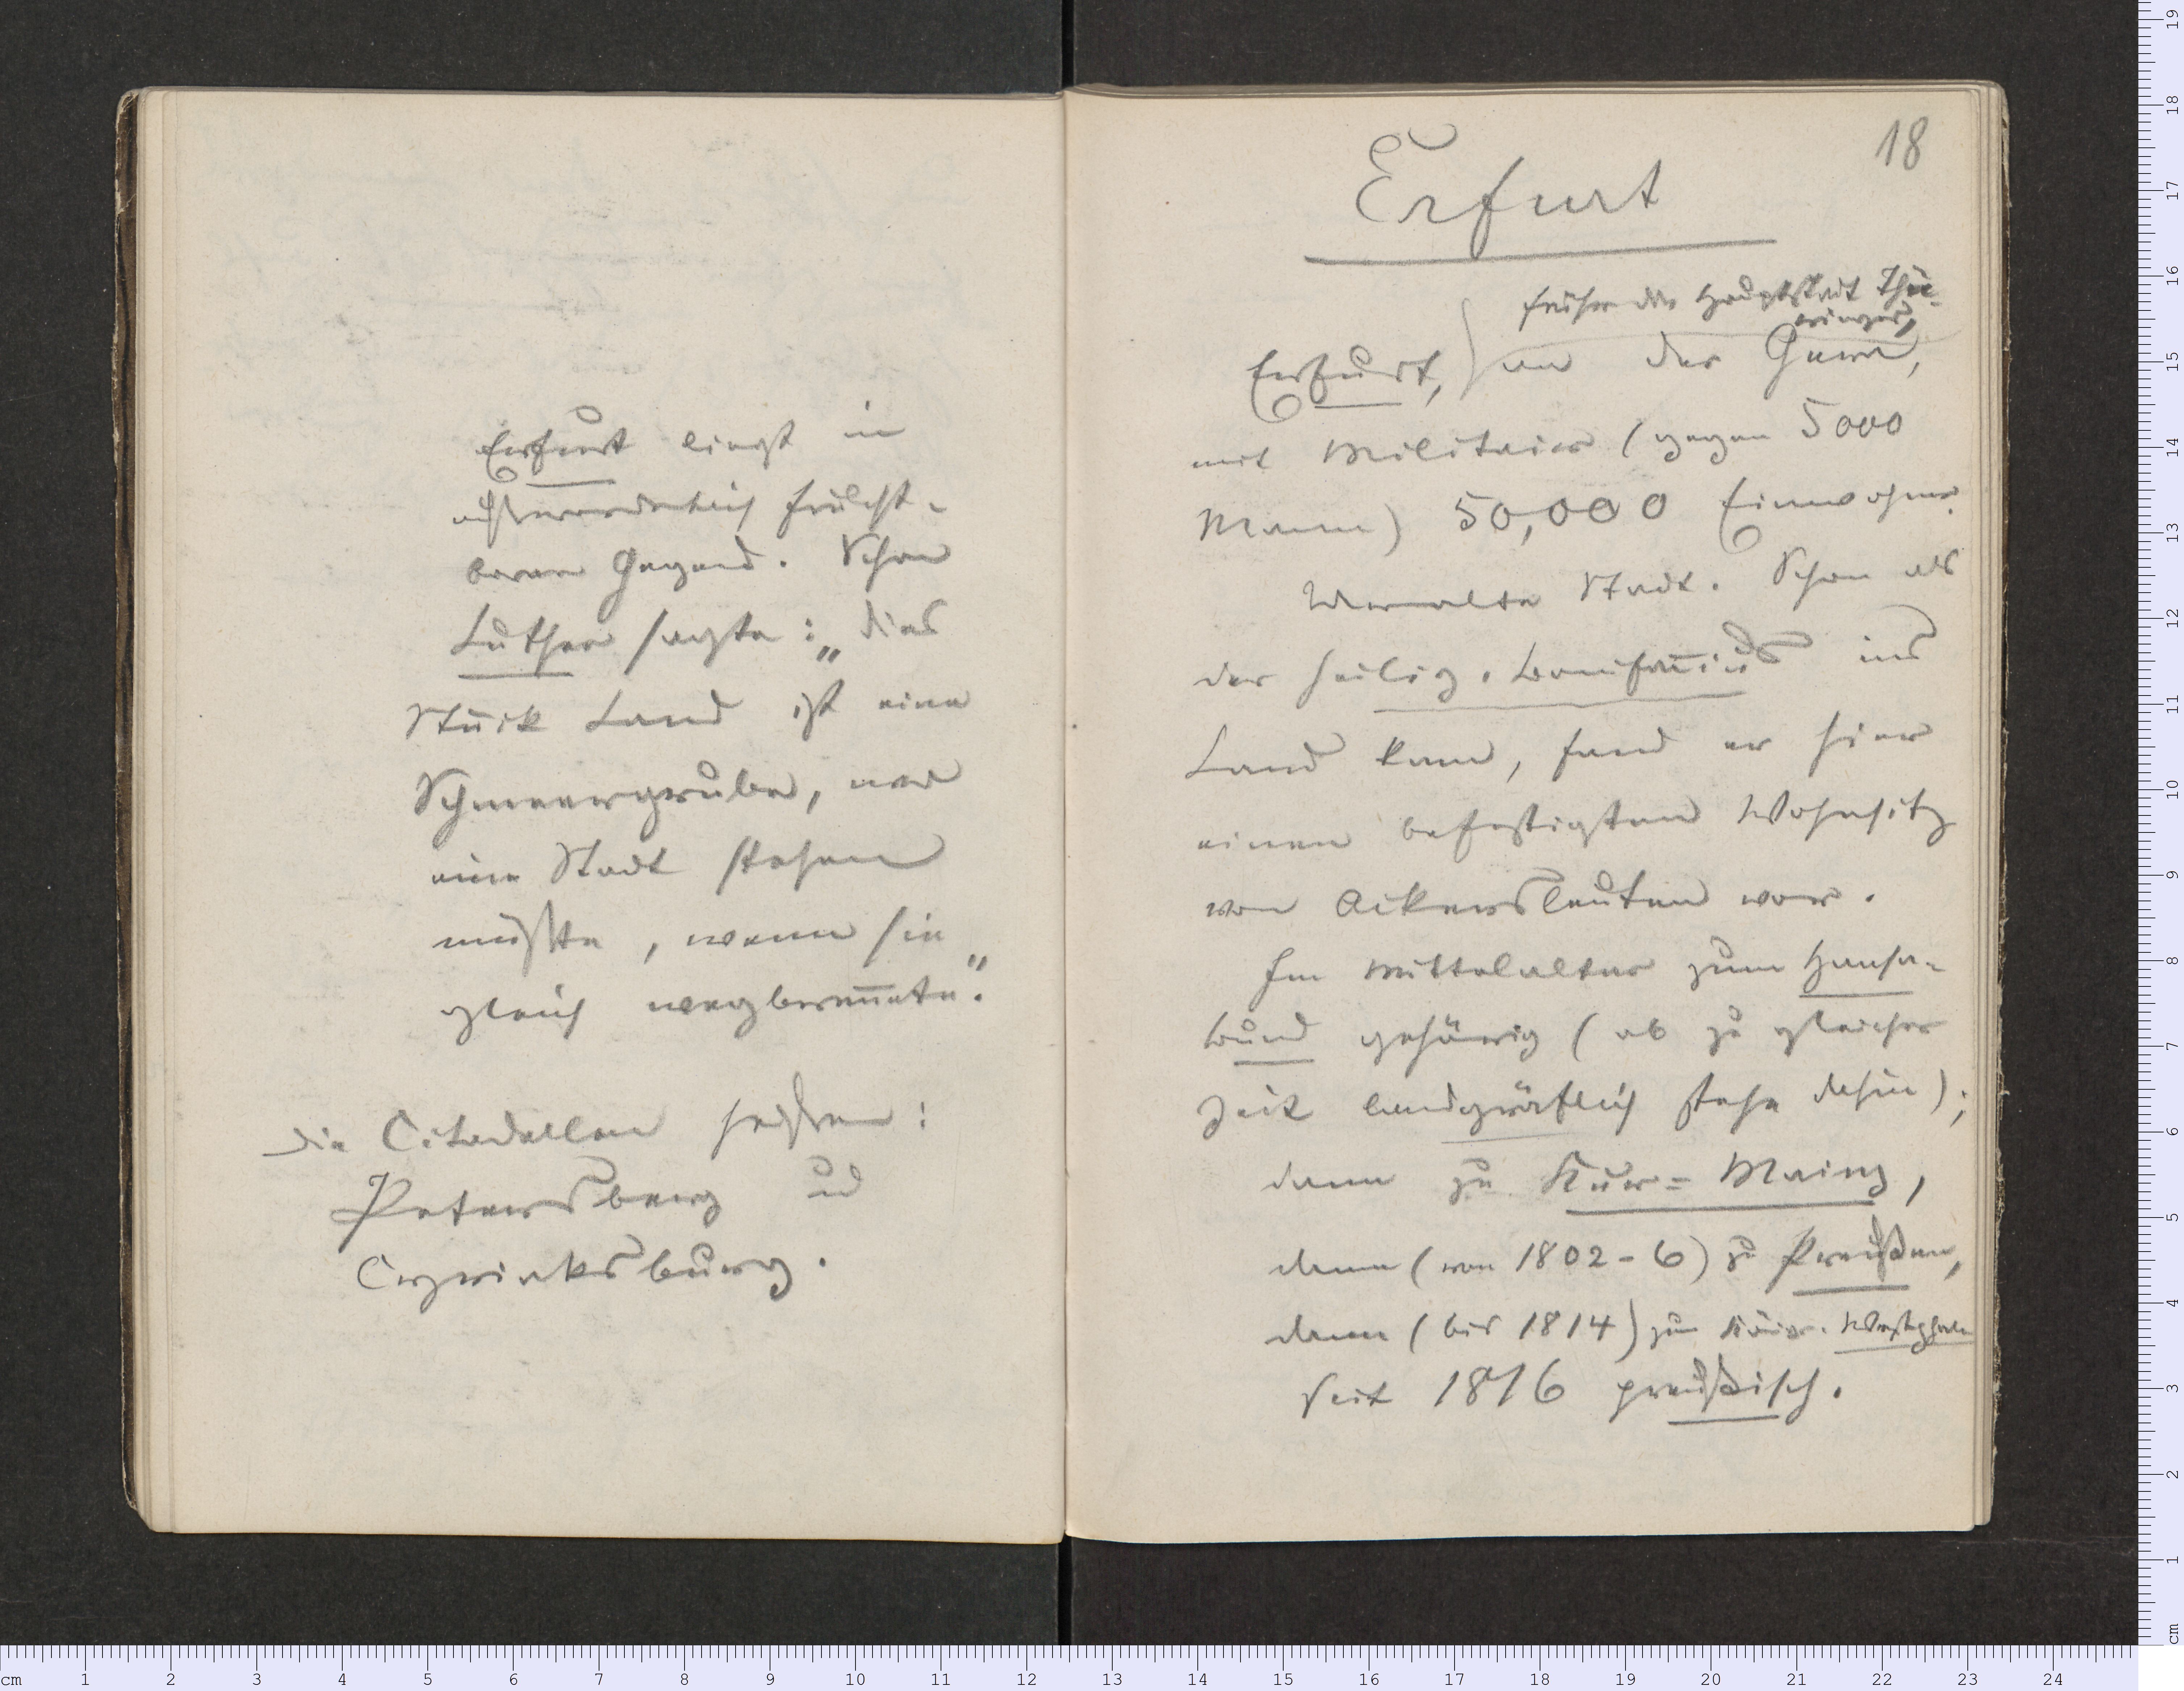 Erfurt liegt in
außerordentlich frucht-
barer Gegend. Schon
Luther sagte: „dies
Stück Land ist eine
Schmeergrube, wo
eine Stadt stehen
müßte, wenn sie
gleich wegbrennte“.
Die Citadellen heißen:
Petersberg u
Cyriaksburg.
18
Erfurt
früher die Hauptstadt Thü-
ringens,
Erfurt, an der Gera,
mit Militair (gegen 5000
Mann) 50,000 Einwohner.
Uralte Stadt. Schon als
der heilig. Bonifacius ins
Land kam, fand er hier
einen befestigten Wohnsitz
von Ackersleuten vor.
Im Mittelalter zum Hansa-
bund gehörig (ob zu gleicher
Zeit landgräflich stehe dahin);
dann zu Kur-Mainz,
dann (von 1802-6) zu Preußen,
dann (bis 1814) zum Königr. Westphalen
Seit 1816 preußisch.